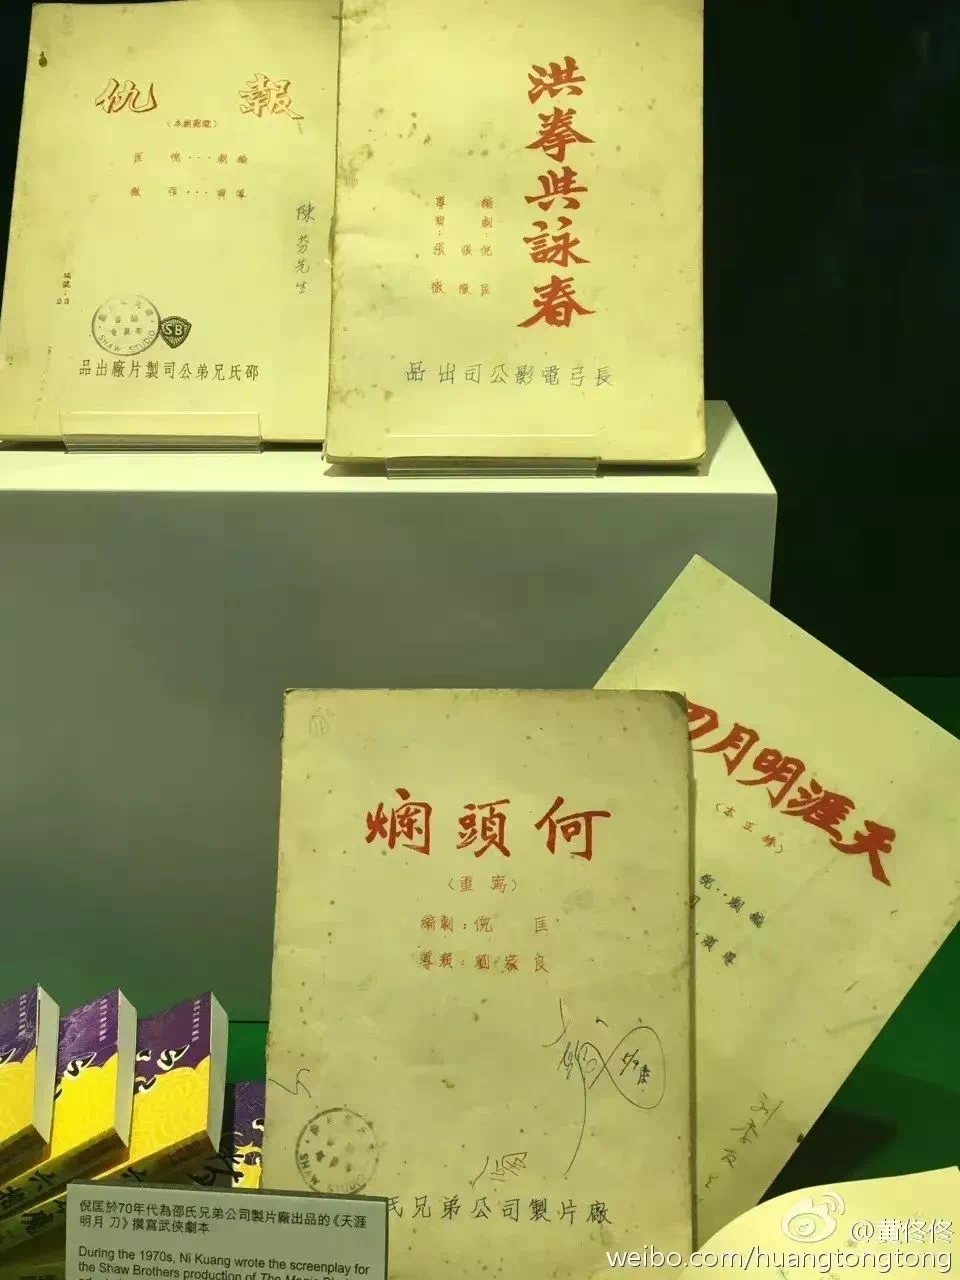 報仇
(電影劇本)
編劇···倪匡
導演···張徹
陳芬先生
編號:23
SHAW STUDIO
SB
邵氏兄弟公司製片廠出品
洪拳與詠春
編劇:倪匡
張徹
導演:張徹
長弓電影公司出品
天涯明月刀
(修正本)
編劇··倪
導演·
何頭爛
(重寫)
編劇:倪匡
導演:劉家良
SHAW STUDIO
氏兄弟公司製片廠
倪匡於70年代為邵氏兄弟公司製片廠出品的《天涯
明月 刀》撰寫武俠劇本
During the 1970s, Ni Kuang wrote the screenplay for
the Shaw Brothers production of The Magic Blade
@黄佟佟
weibo.com/huangtongtong